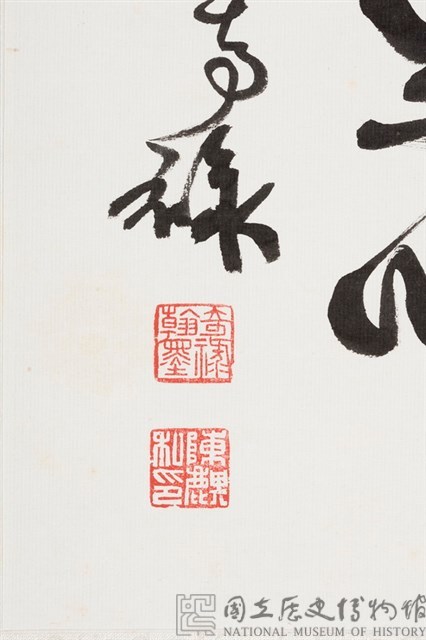 奇祿
奇祿翰墨
陳麒私印
國立歷史博物館
NATIONAL MUSEUM OF HISTORY